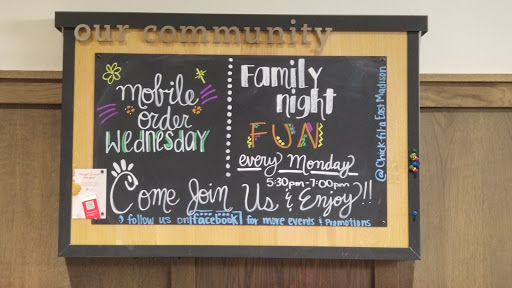 our community
mobile
order
Wednesday
Family
night
FUN
every Monday
5:30pm-7:00pm
Come Join Us & Enjoy!!
follow us on facebook for more events & Promotions
@Chick-fil-a East Madison